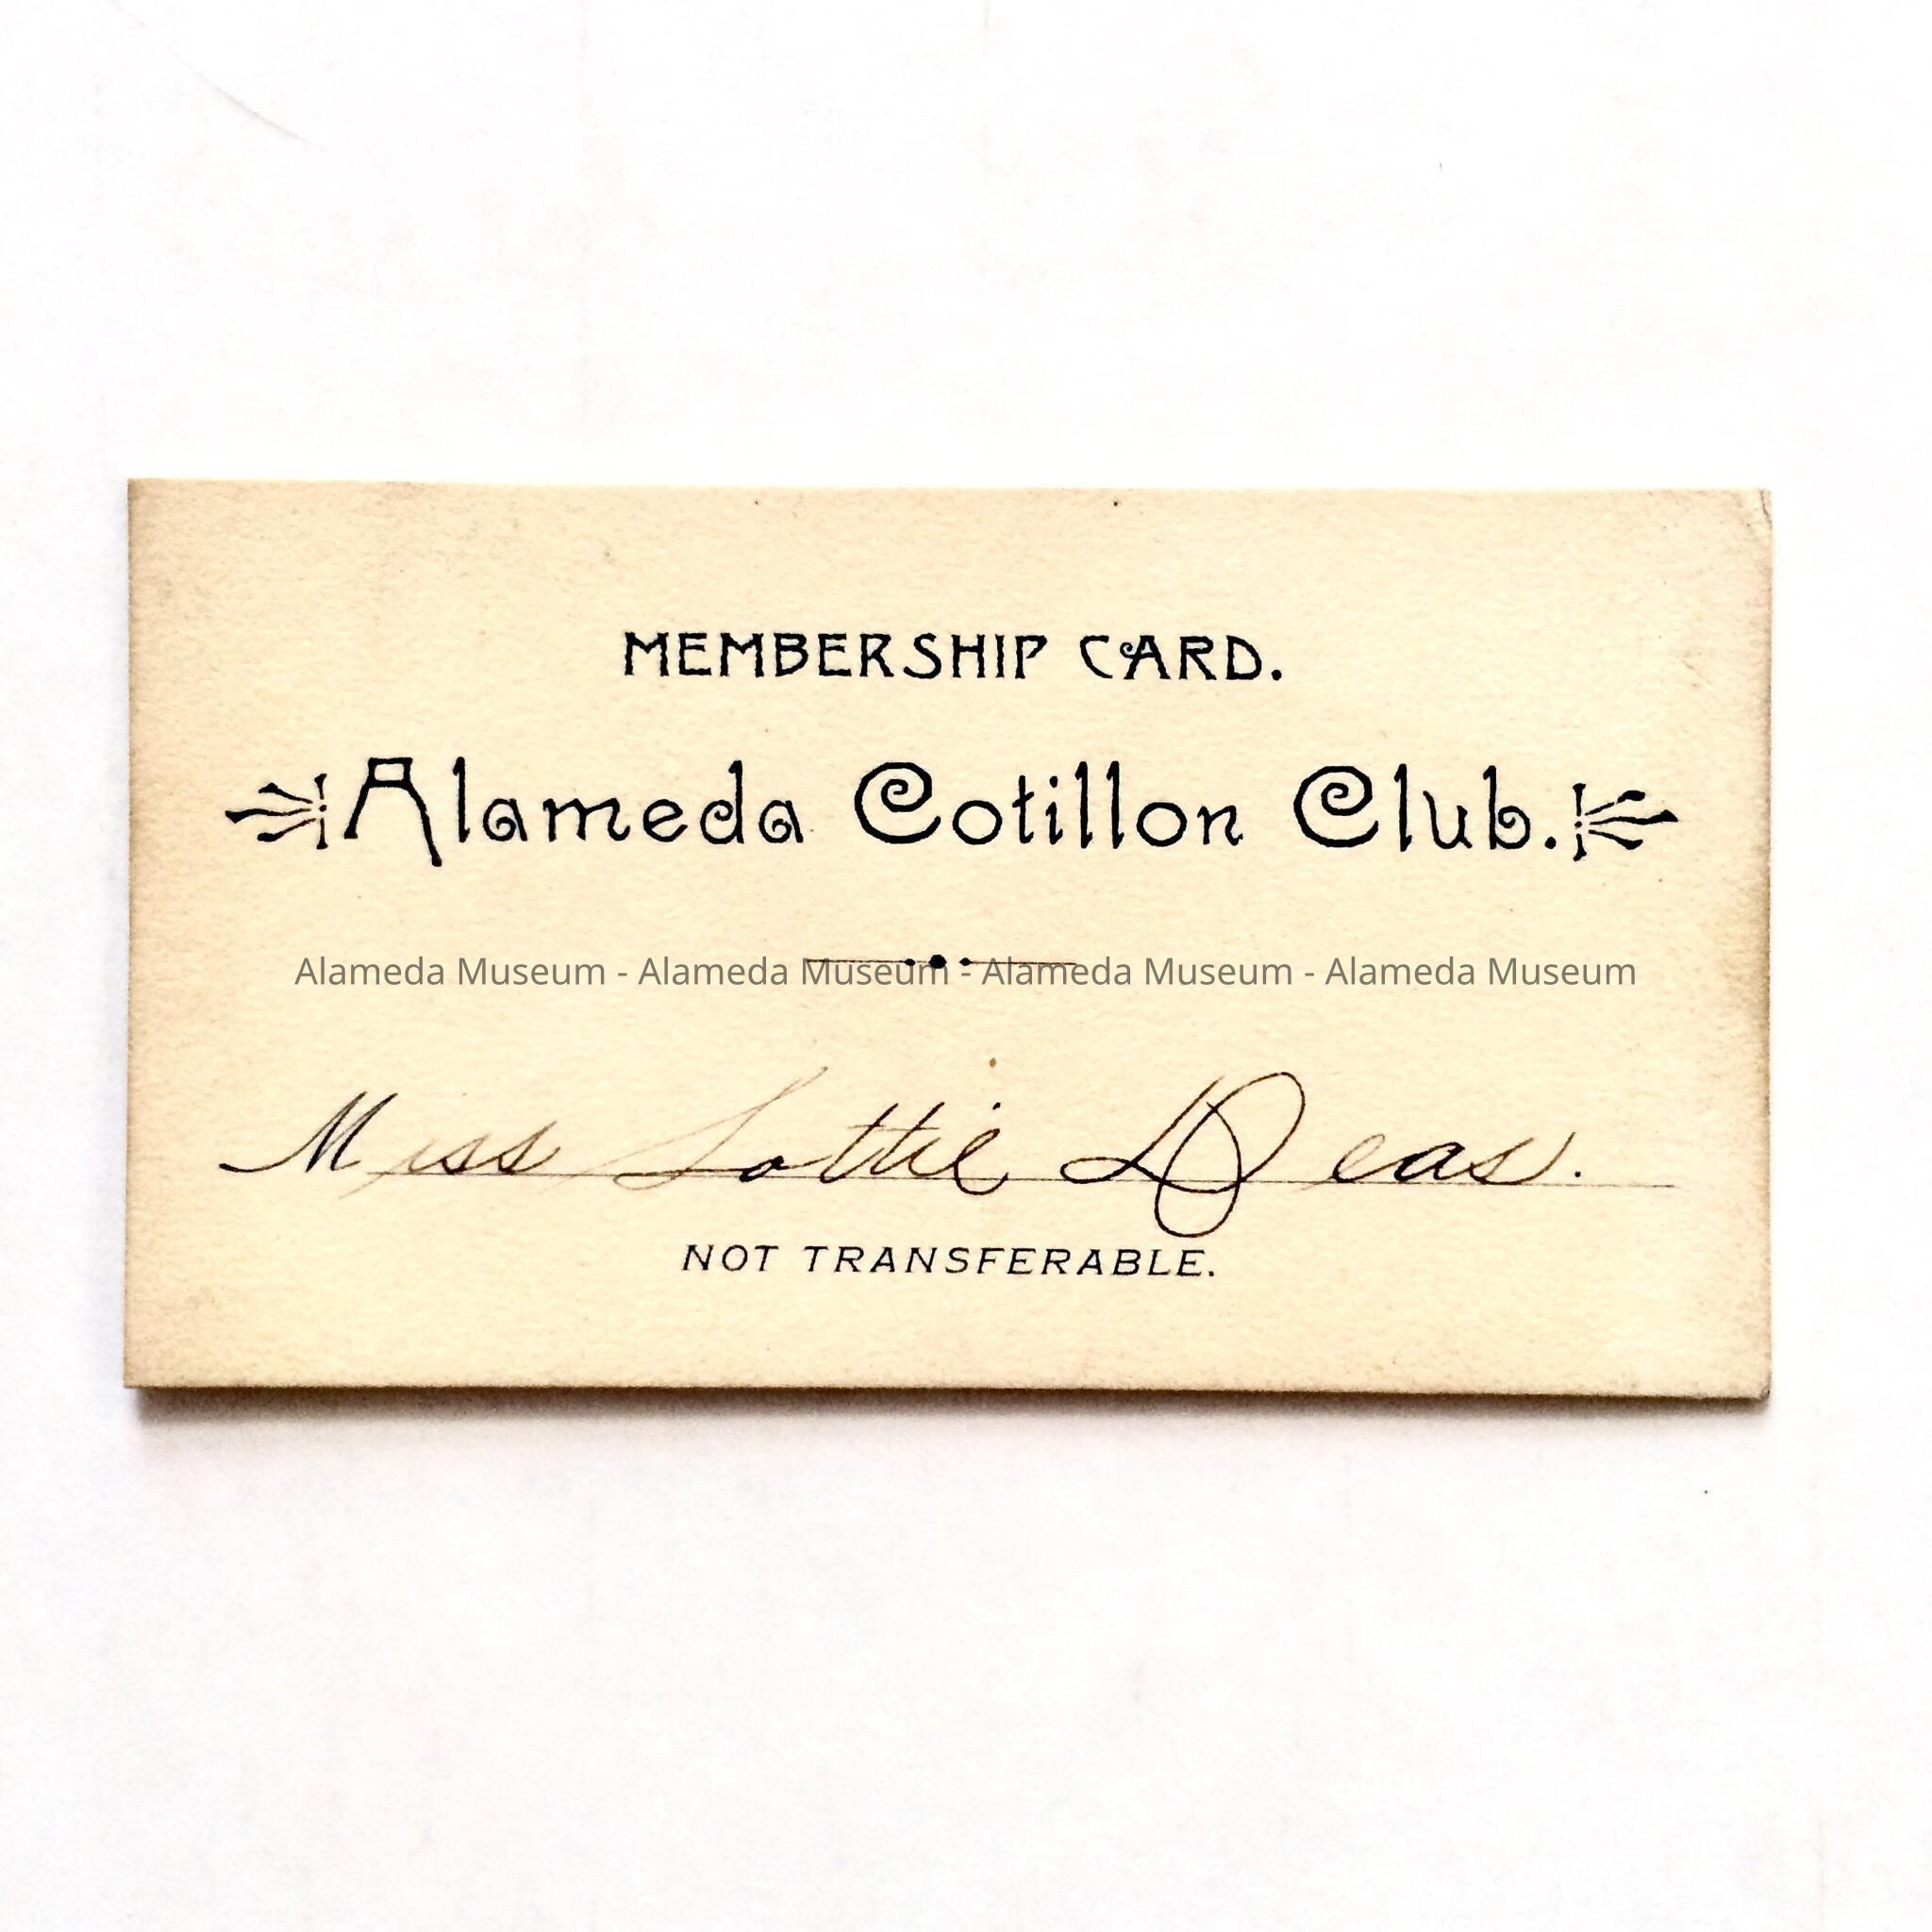 MEMBERSHIP CARD.
Alameda Cotillon Club.
Alameda Museum - Alameda Museum - Alameda Museum - Alameda Museum
Miss Lottie Deas.
NOT TRANSFERABLE.